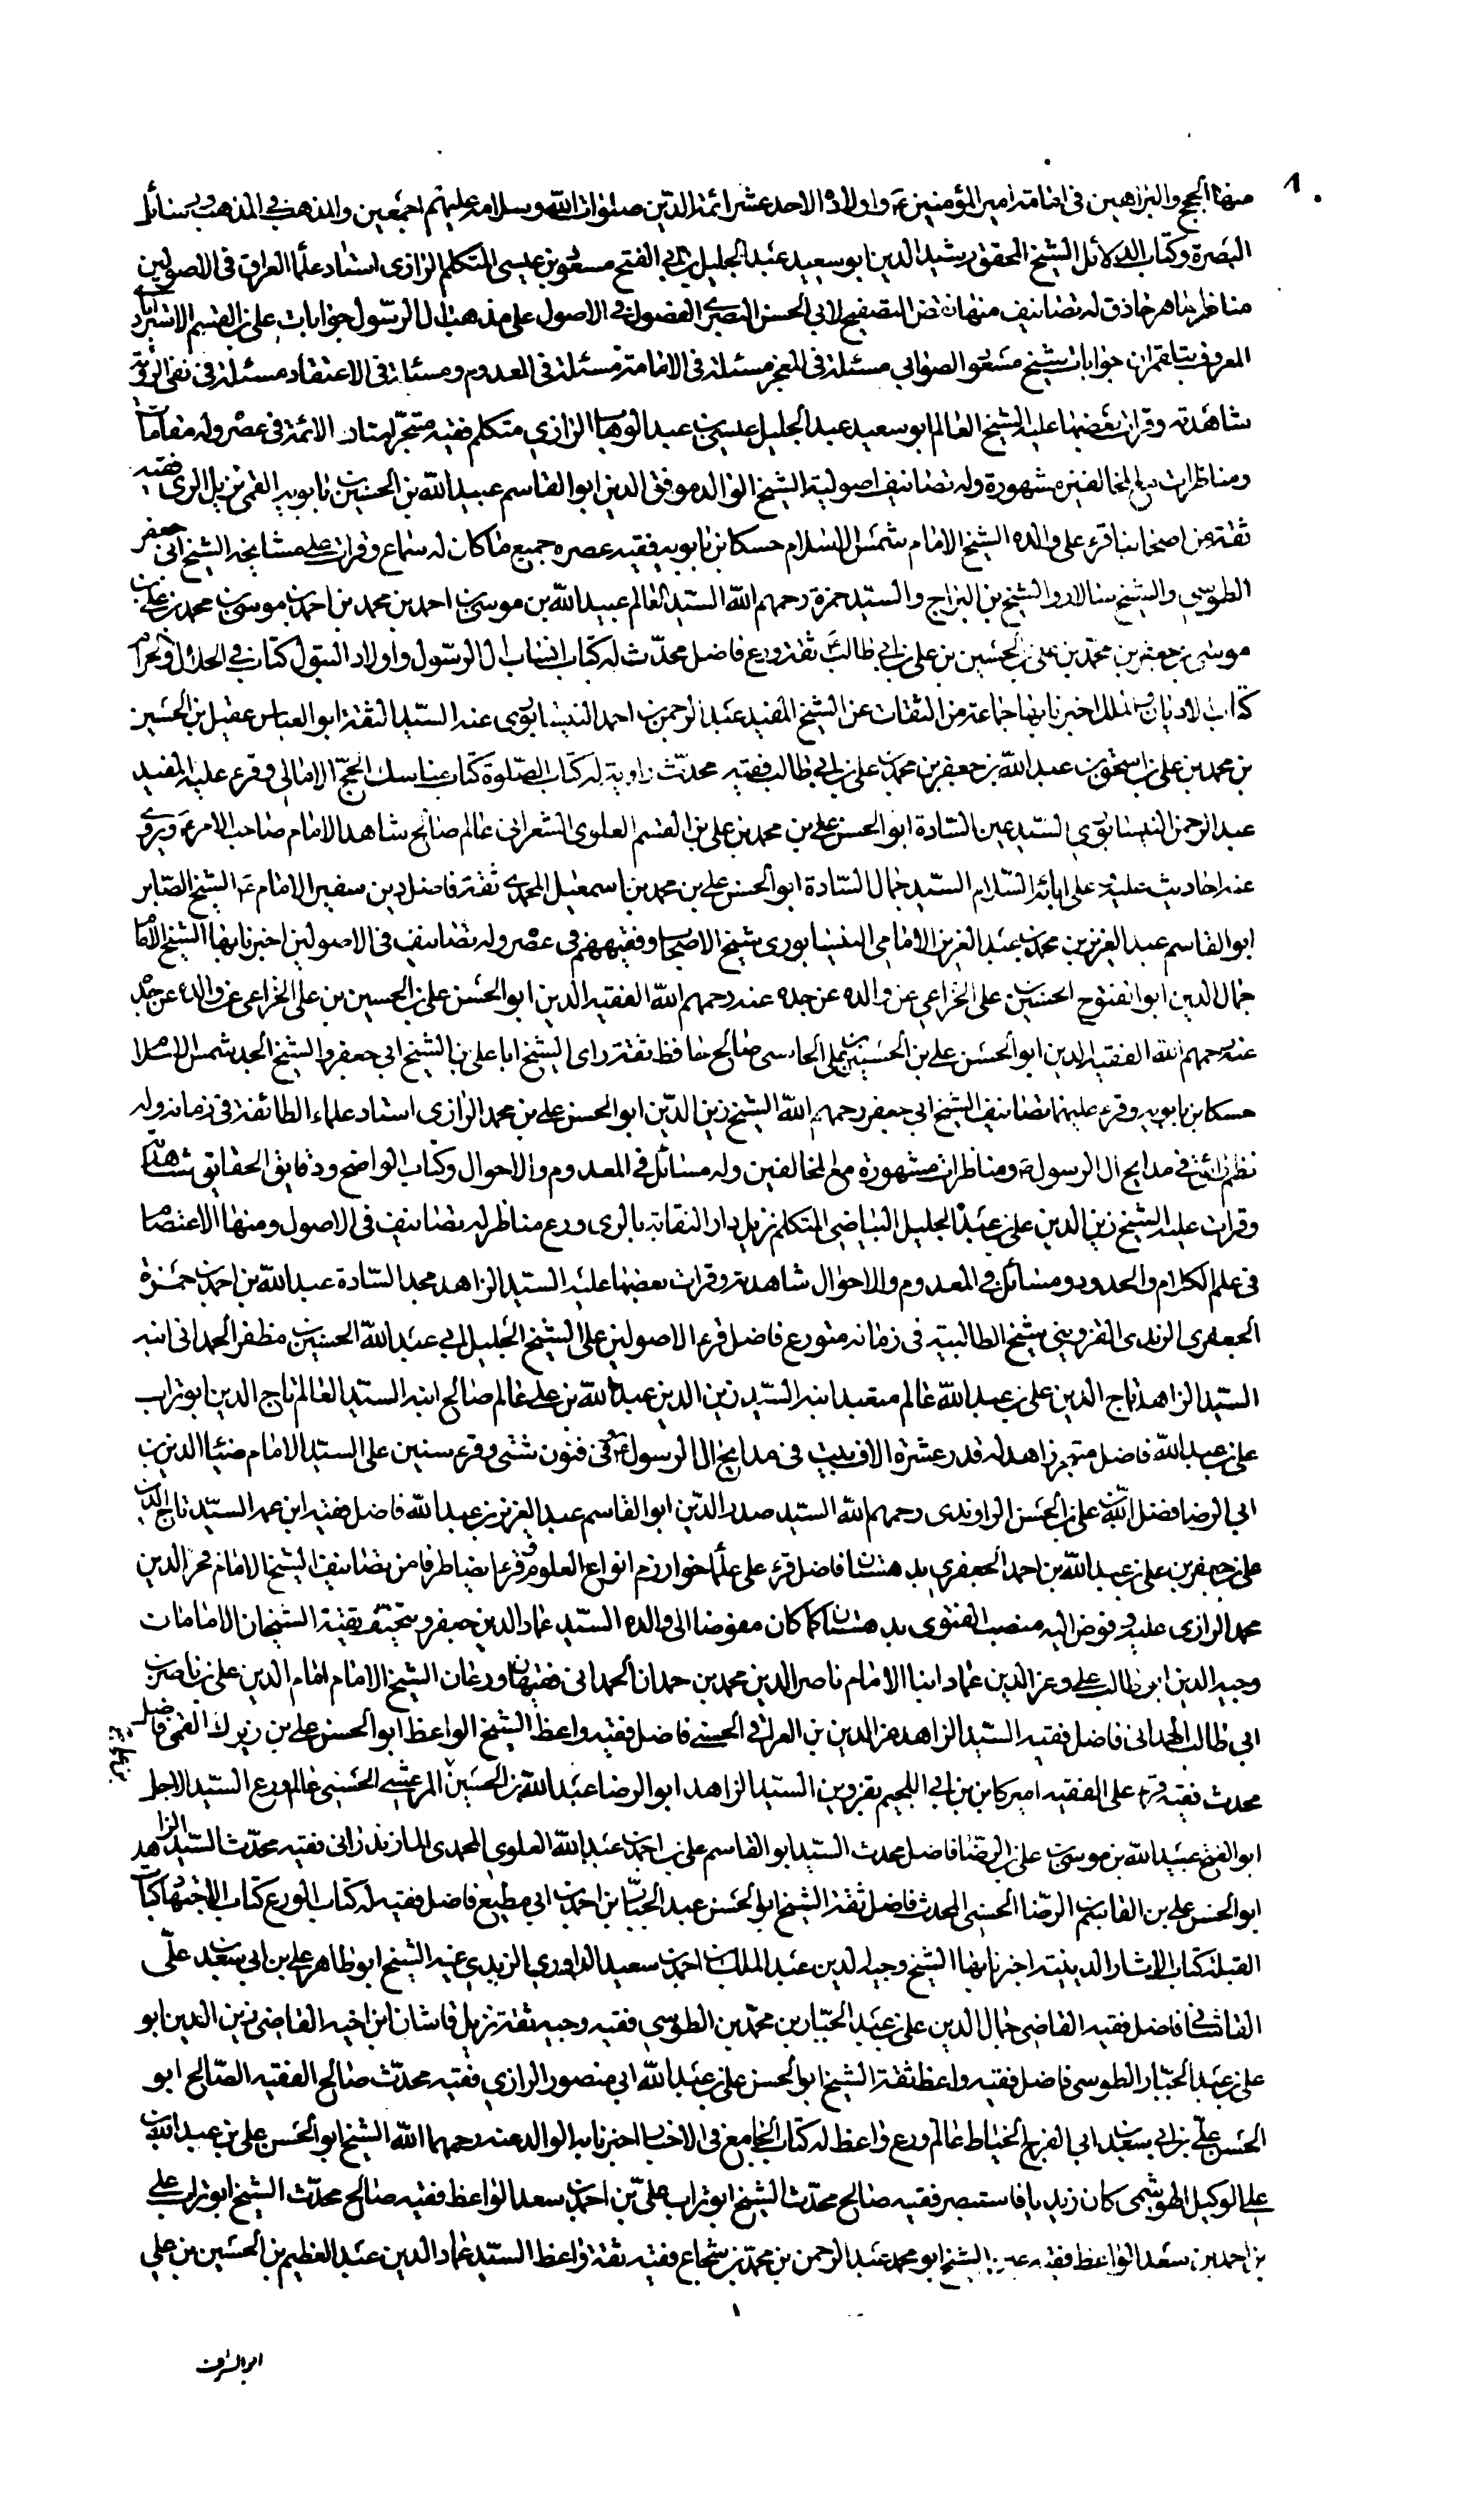 منها الحجج والبراهين في امامة امير المؤمنين ع واولاده الاحد عشر ائمة الدين صلوات الله وسلامه عليهم اجمعين والمذهب في المذهب ومسائل
البصرة وكتاب الدلائل الشيخ المحقق رشيد الدين ابو سعيد عبد الجليل بن ابي الفتح مسعود بن عيسى المتكلم الرازى استاد علما العراق فى الاصولين
مناظر ماهر حاذق له تصانيف منها نقض التصفح لابي الحسن البصرى الفصول في الاصول على مذهب ال الرسول جوابات على بن القسم الاسترابادى
المعروف ببلقمران جوابات شيخ مسعود الصوابي مسئلة في المعجز مسئلة في الامامة مسئلة في المعدوم ومسئلة في الاعتقاد مسئلة في نفى الرؤية
شاهدته وقرات بعضها عليه الشيخ العالم ابو سعيد عبد الجليل بن عيسى بن عبد الوهاب الرازي متكلم فقيه متبحر استاد الائمة في عصره وله مقامات
ومناظرات مع المخالفين مشهورة وله تصانيف اصولية الشيخ الوالد موفق الدين ابو القاسم عبيد الله بن الحسين بن بابويه القمى نزيل الرى فقيه
ثقة من اصحابنا قرء على والده الشيخ الامام شمس الاسلام حسكا بن بابويه فقيه عصره جميع ما كان له سماع وقرات على مشايخه الشيخ ابي جعفر
الطوسي والشيخ سالار والشيخ بن البراج والسيد حمزة رحمهم الله السيد العالم عبيد الله بن موسى بن احمد بن محمد بن احمد بن موسى بن محمد بن على بن
موسى بن جعفر بن محمد بن على بن الحسين بن على بن ابي طالب ع ثقة ورع فاضل محدث له كتاب انساب ال الرسول واولاد البتول كتاب في الحلال والحرام
كتاب الاديان والملل اخبرنا بها جماعة من الثقات عن الشيخ المفيد عبد الرحمن بن احمد النيسابورى عنه السيد الثقة ابو العباس عقيل بن الحسين
بن محمد بن على بن اسحق بن عبد الله بن جعفر بن محمد بن على بن ابي طالب فقيه محدث راوية له كتاب الصلوة كتاب مناسك الحج الامالي وقرء عليه المفيد
عبد الرحمن النيسابوري السيد عين السادة ابو الحسن على بن محمد بن على بن القسم العلوى الشعرانى عالم صالح شاهد الامام صاحب الامر ع ويروى
عنه احاديث عليه وعلى ابائه السلام السيد جمال السادة ابو الحسن على بن محمد بن اسمعيل المحمدي ثقة فاضل دين سفير الامام ع الشيخ الصابر
ابو القاسم عبد العزيز بن محمد بن عبد العزيز الامامى النيسابورى شيخ الاصحاب وفقيههم في عصره وله تصانيف في الاصولين اخبرنا بها الشيخ الامام
جمال الدين ابو الفتوح الحسين بن على الخزاعي عن والده عن جده عنه رحمهم الله الفقيه الدين ابو الحسن على بن الحسين بن على الخزاعى عن والده عن جده
عنه رحمهم الله الفقيه الدين ابو الحسن على بن الحسين بن على الجاسى صالح حافظ ثقة راى الشيخ ابا على بن الشيخ ابي جعفر والشيخ الجد شمس الاسلام
حسكا بن بابويه وقرء عليهما تصانيف الشيخ ابي جعفر رحمهم الله الشيخ زين الدين ابو الحسن على بن محمد الرازى استاد علماء الطائفة في زمانه وله
نظم رائق في مدايح ال الرسول ص ومناظرات مشهورة مع المخالفين وله مسائل في المعدوم والاحوال وكتاب الواضح ودقايق الحقايق شاهدته
وقرات عليه الشيخ زين الدين على بن عبد الجليل البياضي المتكلم نزيل دار النقابة بالرى ورع مناظر له تصانيف في الاصول ومنها الاعتصام
في علم الكلام والحدود ومسائل في المعدوم والاحوال شاهدته وقرات بعضها عليه السيد الزاهد مجد السادة عبد الله بن احمد بن حمزة
الجعفرى الزيدى القزويني شيخ الطالبية في زمانه متورع فاضل قرء الاصولين على الشيخ الجليل ابي عبد الله الحسين بن مظفر الحمدانى ابنه
السيد الزاهد تاج الدين على بن عبد الله عالم متعبد ابنه السيد زين الدين عبد الله بن على عالم صالح ابنه السيد العالم تاج الدين ابو تراب
على بن عبد الله فاضل متبحر زاهد له قدر عشرة الاف بيت في مدايح ال الرسول ع وفى فنون شتى وقرء سنين على السيد الامام ضياء الدين بن
ابي الرضا فضل الله بن على بن الحسن الراوندى رحمهم الله السيد صدر الدين ابو القاسم عبد العزيز بن عبد الله فاضل فقيه ابن عمه السيد تاج الدين
على بن جعفر بن على بن عبد الله بن احمد الجعفرى بدهستان فاضل قرء على علما خوارزم انواع العلوم وقرء ايضا طرفا من تصانيف الشيخ الامام فخر الدين
محمد الرازى عليه وفوض اليه منصب الفتوى بدهستان كما كان مفوضا الى والده السيد عماد الدين جعفر ويتحنف تقية الشيخان الامامان
وجيه الدين ابو طالب على وعز الدين عماد ابنا الامام ناصر الدين محمد بن حمدان الحمدانى فقيهان ورعان الشيخ الامام امام الدين على بن ناصر بن
ابي طالب الحمدانى فاضل فقيه السيد الزاهد عز الدين بن العراقى الحسنى فاضل فقيه واعظ الشيخ الواعظ ابو الحسن على بن زيرك القمى فاضل
محدث فقيه قرء على الفقيه اميركا بن بن ابي اللجيم بقزوين السيد الزاهد ابو الرضا عبد الله بن الحسين المرعشي الحسيني عالم ورع السيد الاجل
ابو الفتح عبيد الله بن موسى بن على بن الرضا فاضل محدث السيد ابو القاسم على بن احمد بن عبد الله العلوي المحمدى المازندرانى فقيه محدث السيد الزاهد
ابو الحسن على بن القاسم بن الرضا الحسنى المحدث فاضل ثقة الشيخ ابو الحسن عبد الجبار بن احمد بن ابي مطيع فاضل فقيه له كتاب الورع كتاب الاجتهاد كتاب
القبلة كتاب الاثار الدينية اخبرنا بها الشيخ وجيه الدين عبد الملك بن احمد بن سعيد الداوري الزيدي عنه الشيخ ابو طاهر على بن ابي سعد بن على
القاشاني فاضل فقيه القاضى جمال الدين على بن عبد الجبار بن محمد بن الطوسي فقيه وجيه ثقة نزيل قاشان ابن اخيه القاضى زين الدين ابو
على بن عبد الجبار الطوسى فاضل فقيه واعظ ثقة الشيخ ابو الحسن على بن عبد الله ابي منصور الرازي فقيه محدث صالح الفقيه الصالح ابو
الحسن على بن ابي سعد بن ابي الفرج الخياط عالم ورع واعظ له كتاب الجامع في الاخبار اخبرنا به الوالد عنه رحمهما الله الشيخ ابو الحسن على بن عبد الله بن
على الوكيل الهوشمى كان زيديا فاستبصر فقيه صالح محدث الشيخ ابو تراب على بن احمد بن سعد الواعظ فقيه صالح محدث الشيخ ابو تراب على
بن احمد بن سعد الواعظ فقيه الشيخ ابو محمد عبد الرحمن بن محمد بن شجاع فقيه ثقة واعظ السيد عماد الدين عبد العظيم بن الحسين بن على
ابو الشرف